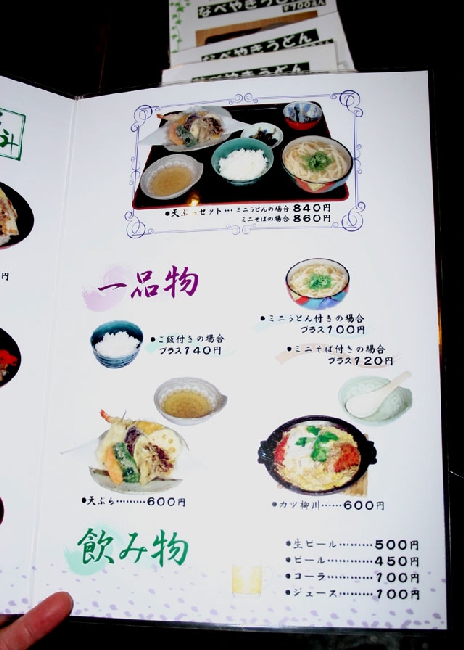 なべやきうどん
なべやきうどん
なべやきうどん
●天ぷらセット…ミニうどんの場合 840円
ミニそばの場合 860円
一品物
●ミニうどん付きの場合
プラス100円
●ご飯付きの場合
プラス140円
●ミニそば付きの場合
プラス120円
●天ぷら………600円
●カツ柳川……600円
飲み物
●生ビール………500円
●ビール…………450円
●コーラ…………100円
●ジュース………100円
円